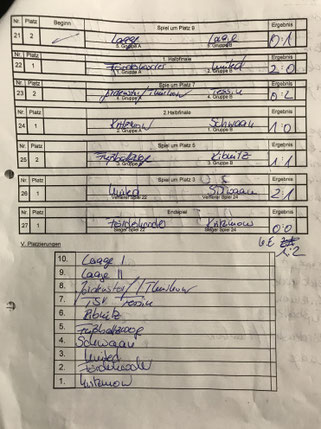 Nr. Platz Beginn Spiel um Platz 9 Ergebnis
21 2 Laage Laage 0:1
5. Gruppe A 5. Gruppe B
Nr. Platz Halbfinale Ergebnis
22 1 Förderkader United 2:0
1. Gruppe A 2. Gruppe B
Nr. Platz Spiel um Platz 7 Ergebnis
23 2 Tessin 0:2
4. Gruppe A 4. Gruppe B
Nr. Platz 2. Halbfinale Ergebnis
24 1 Schwaan 1:0
2. Gruppe A 1. Gruppe B
Nr. Platz Spiel um Platz 5 Ergebnis
25 2 Ribnitz 1:1
3. Gruppe A 3. Gruppe B
Nr. Platz Spiel um Platz 3 Ergebnis
26 1 United Schwaan 2:1
Verlierer Spiel 22 Verlierer Spiel 24
Nr. Platz Endspiel Ergebnis
27 1 Förderkader 0:0
Sieger Spiel 22 Sieger Spiel 24
1:2
V. Platzierungen
10. Laage I
9. Laage II
8.
7. TSV Tessin
6. Ribnitz
5.
4. Schwaan
3. United
2. Förderkader
1.